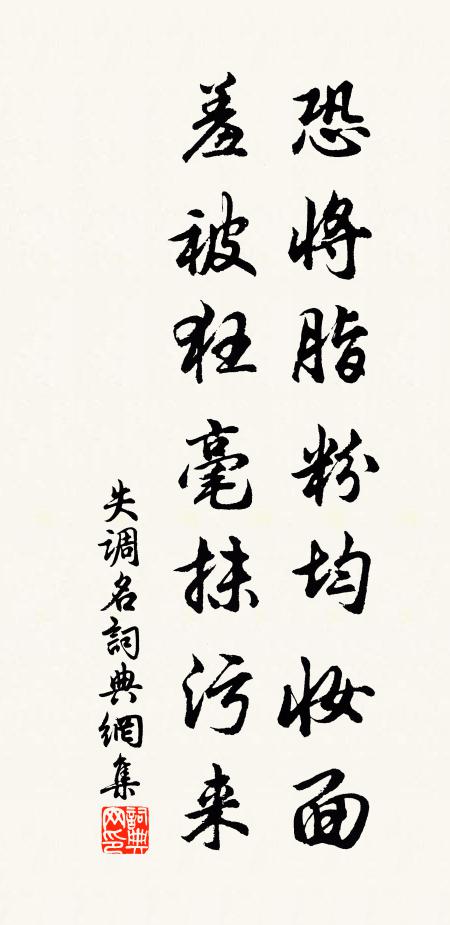 恐將脂粉均妆面
羞被狂毫抹污来
失调名詞典網集
詞典网印